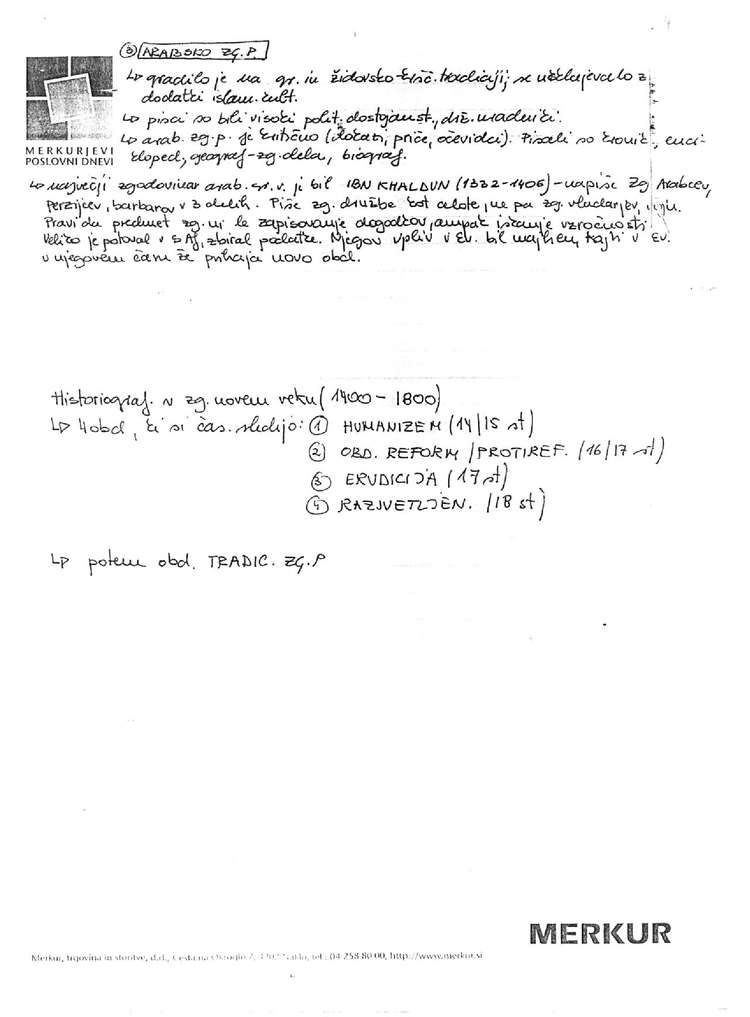 ③ ARABSKO ZG. P.
↳ gradilo je na gr. in židovsko-kršč. tradiciji; se uveljavljalo z
dodatki islam. kult.
↳ pisci so bili visoki polit. dostojanst., drž. uradniki.
↳ arab. zg. p. je kritično (dokazi, priče, očevidci). Pisali so kronik., enci-
kloped., geograf-zg. dela, biograf.
MERKURJEVI
POSLOVNI DNEVI
↳ največji zgodovinar arab. sr. v. je bil IBN KHALDUN (1332-1406) - napiše Zg Arabcev,
Perzijcev, barbarov v 3 delih. Piše zg. družbe kot celote, ne pa zg. vladarjev,
Pravi da predmet zg. ni le zapisovanje dogodkov, ampak iskanje vzročnosti
Veliko je potoval v S Af, zbiral podatke. Njegov vpliv v Ev. bil majhen, kajti v Ev.
v njegovem času že prihaja novo obd.
Historiograf. v zg. novem veku (1400 - 1800)
↳ 4 obd, ki si čas. sledijo: ① HUMANIZEM (14/15 st)
② OBD. REFORM / PROTIREF. (16/17 st)
③ ERUDICIJA (17 st)
④ RAZSVETLJEN. (18 st)
↳ potem obd. TRADIC. ZG. P
MERKUR
Merkur, trgovina in storitve, d.d., Cesta na Okroglo 7, 4202 Naklo, tel.: 04 258 80 00, http://www.merkur.si